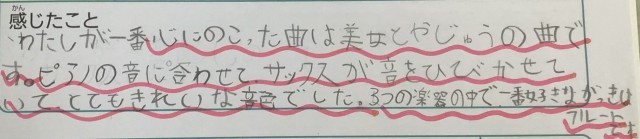 かん
感じたこと
・わたしが一番心にのこった曲は美女とやじゅうの曲で
す。ピアノの音に合わせて、サックスが音をひびかせて
いて、とてもきれいな音色でした。3つの楽器の中で一番好きながっきは
フルート
です